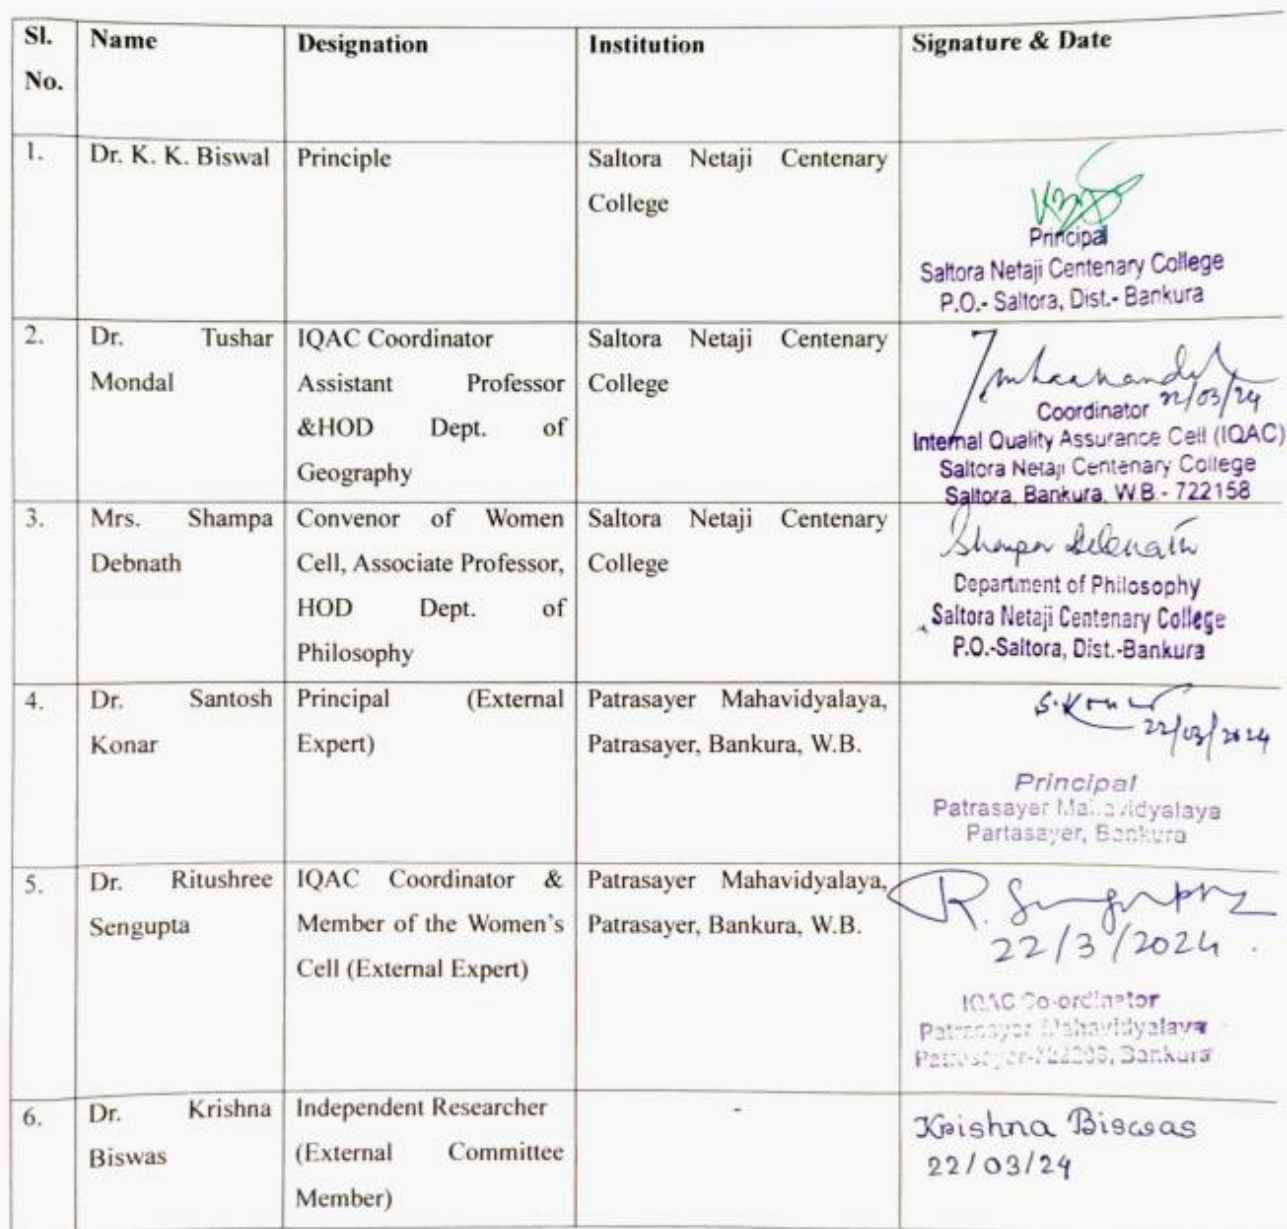 Sl. No.
Name
Designation
Institution
Signature & Date
1.
Dr. K. K. Biswal
Principle
Saltora Netaji Centenary
College
Principal
Saltora Netaji Centenary College
P.O.- Saltora, Dist.- Bankura
2.
Dr. Tushar
Mondal
IQAC Coordinator
Assistant Professor
&HOD Dept. of
Geography
Saltora Netaji Centenary
College
22/03/24
Coordinator
Internal Quality Assurance Cell (IQAC)
Saltora Netaji Centenary College
Saltora, Bankura, W.B.- 722158
3.
Mrs. Shampa
Debnath
Convenor of Women
Cell, Associate Professor,
HOD Dept. of
Philosophy
Saltora Netaji Centenary
College
Shampa Debnath
Department of Philosophy
Saltora Netaji Centenary College
P.O.-Saltora, Dist.-Bankura
4.
Dr. Santosh
Konar
Principal (External
Expert)
Patrasayer Mahavidyalaya,
Patrasayer, Bankura, W.B.
S. Konar
22/03/2024
Principal
Patrasayer Mahavidyalaya
Partasayer, Bankura
5.
Dr. Ritushree
Sengupta
IQAC Coordinator &
Member of the Women's
Cell (External Expert)
Patrasayer Mahavidyalaya,
Patrasayer, Bankura, W.B.
R. Sengupta
22/3/2024.
IQAC Co-ordinator
Patrasayer Mahavidyalaya
Bankura
6.
Dr. Krishna
Biswas
Independent Researcher
(External Committee
Member)
-
Krishna Biswas
22/03/24